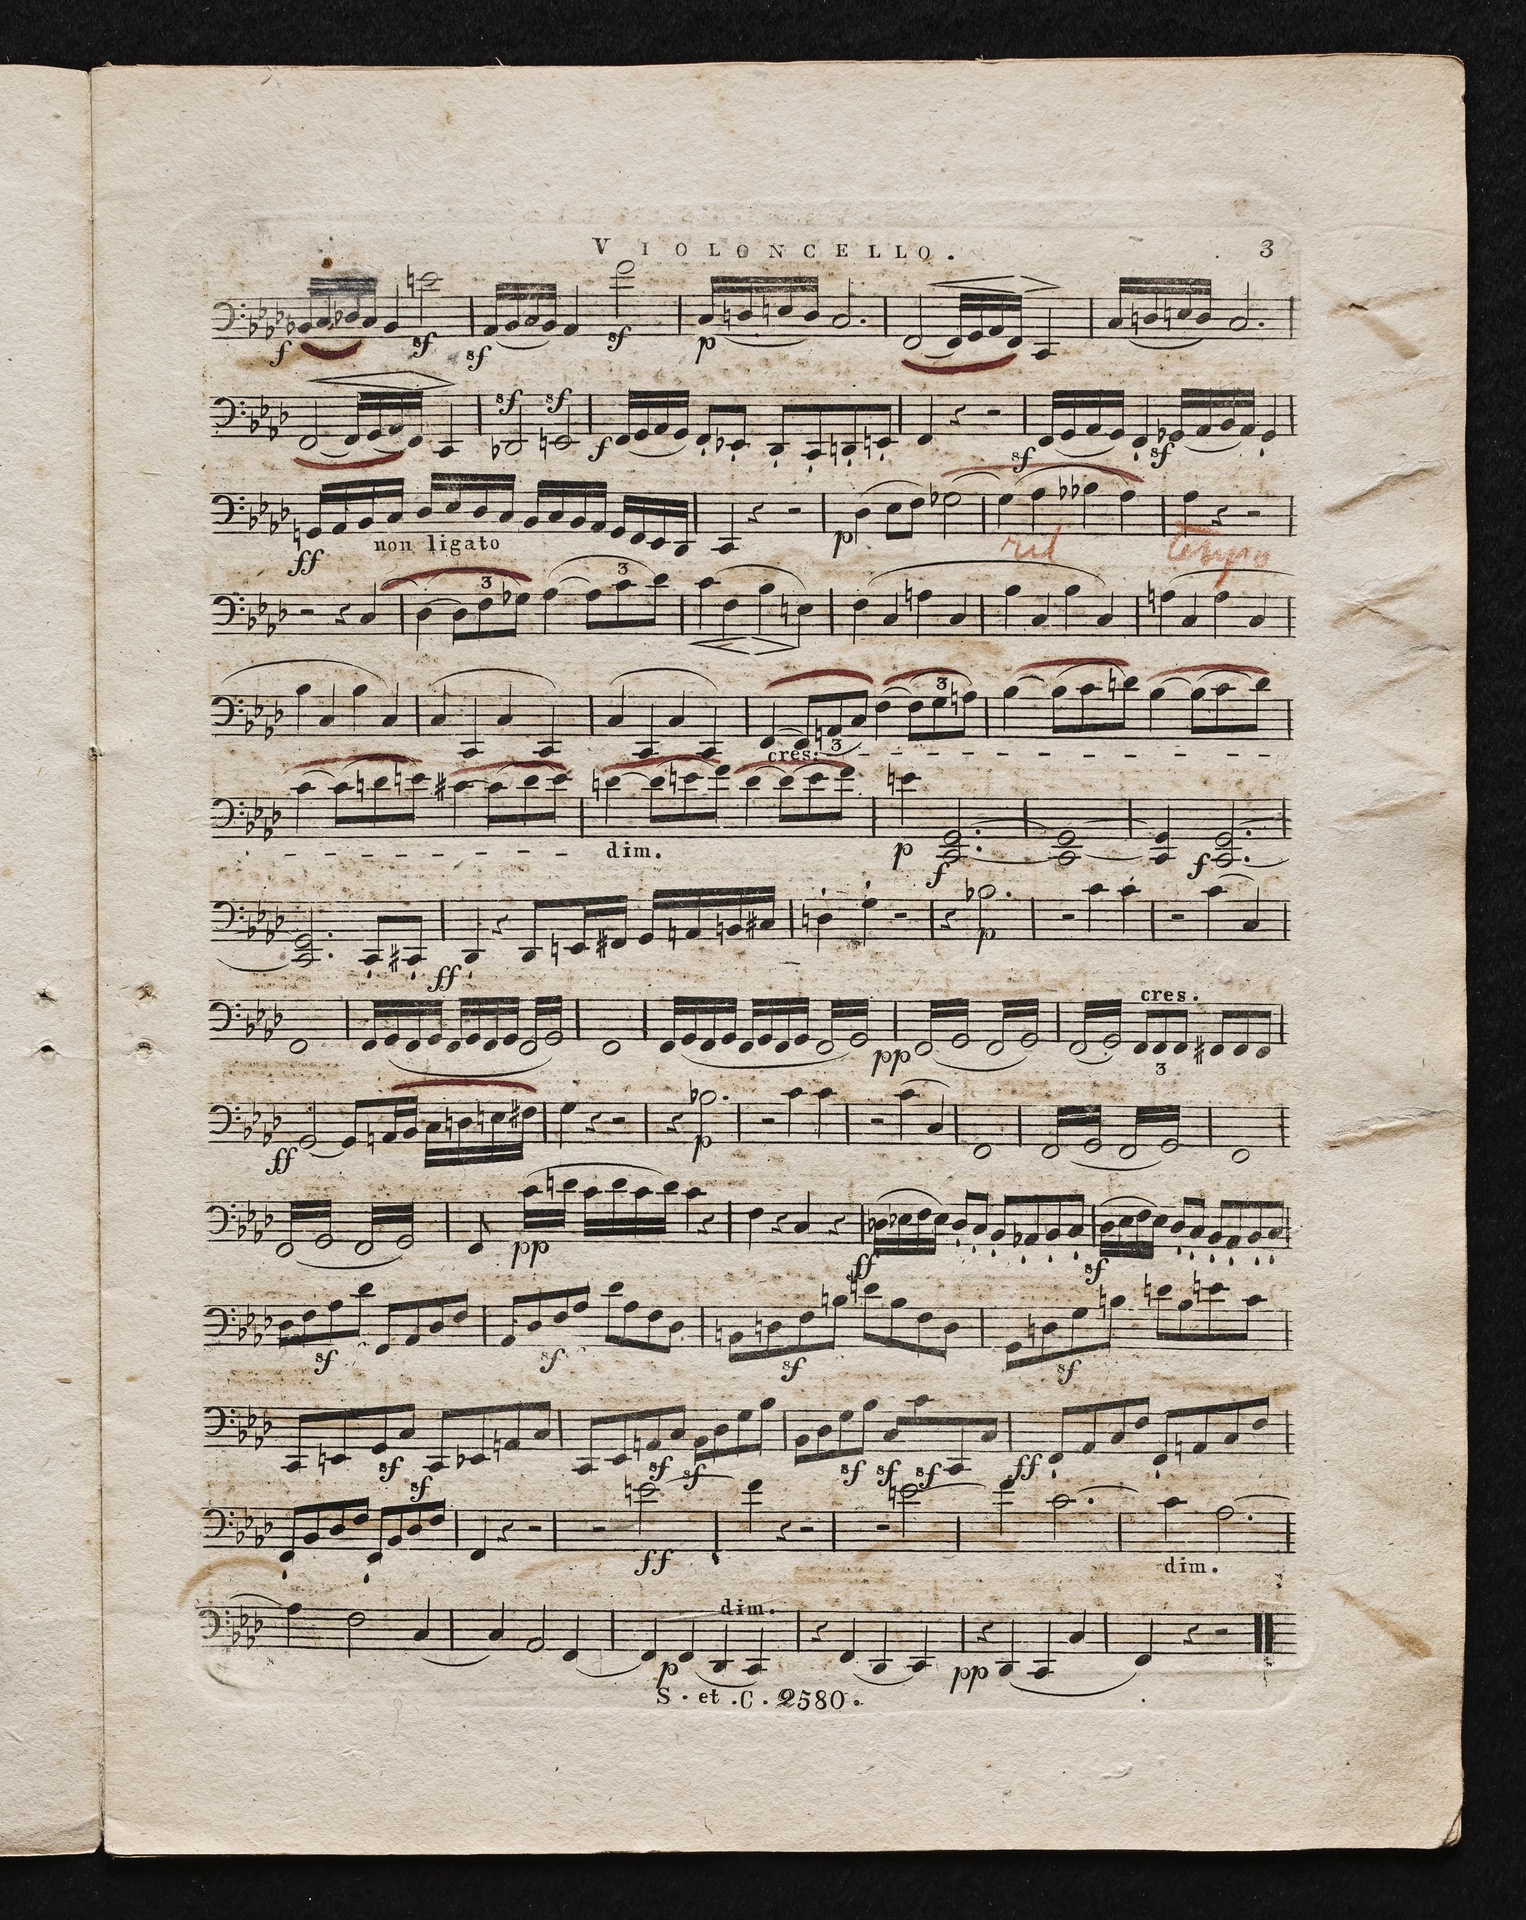 VIOLONCELLO. 3
f sf sf sf p
sf sf f sf sf
ff non ligato p rit tempo
3 3
cres: 3 3
dim. p f f
ff p
pp cres. 3
ff p
pp ff sf
sf sf sf sf
sf sf sf sf sf sf sf ff
ff dim.
p dim. pp
S. et .C. 2580.